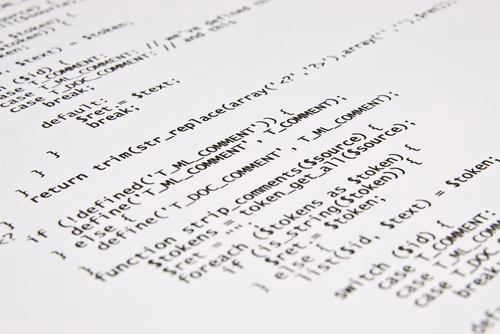 = $token;
$text) = $token;
($id) {
case T_COMMENT: // we've defined this
case T_DOC_COMMENT: // and this
break;
default:
$ret .= $text;
break;
}
}
}
return trim(str_replace(array('<?', '?>'),array('',''),$ret));
}
if (!defined('T_ML_COMMENT')) {
define('T_ML_COMMENT', T_COMMENT);
} else {
define('T_DOC_COMMENT', T_ML_COMMENT);
}
function strip_comments($source) {
$tokens = token_get_all($source);
$ret = "";
foreach ($tokens as $token) {
if (is_string($token)) {
$ret .= $token;
} else {
list($id, $text) = $token;
switch ($id) {
case T_COMMENT:
case T_DOC_COMMENT: